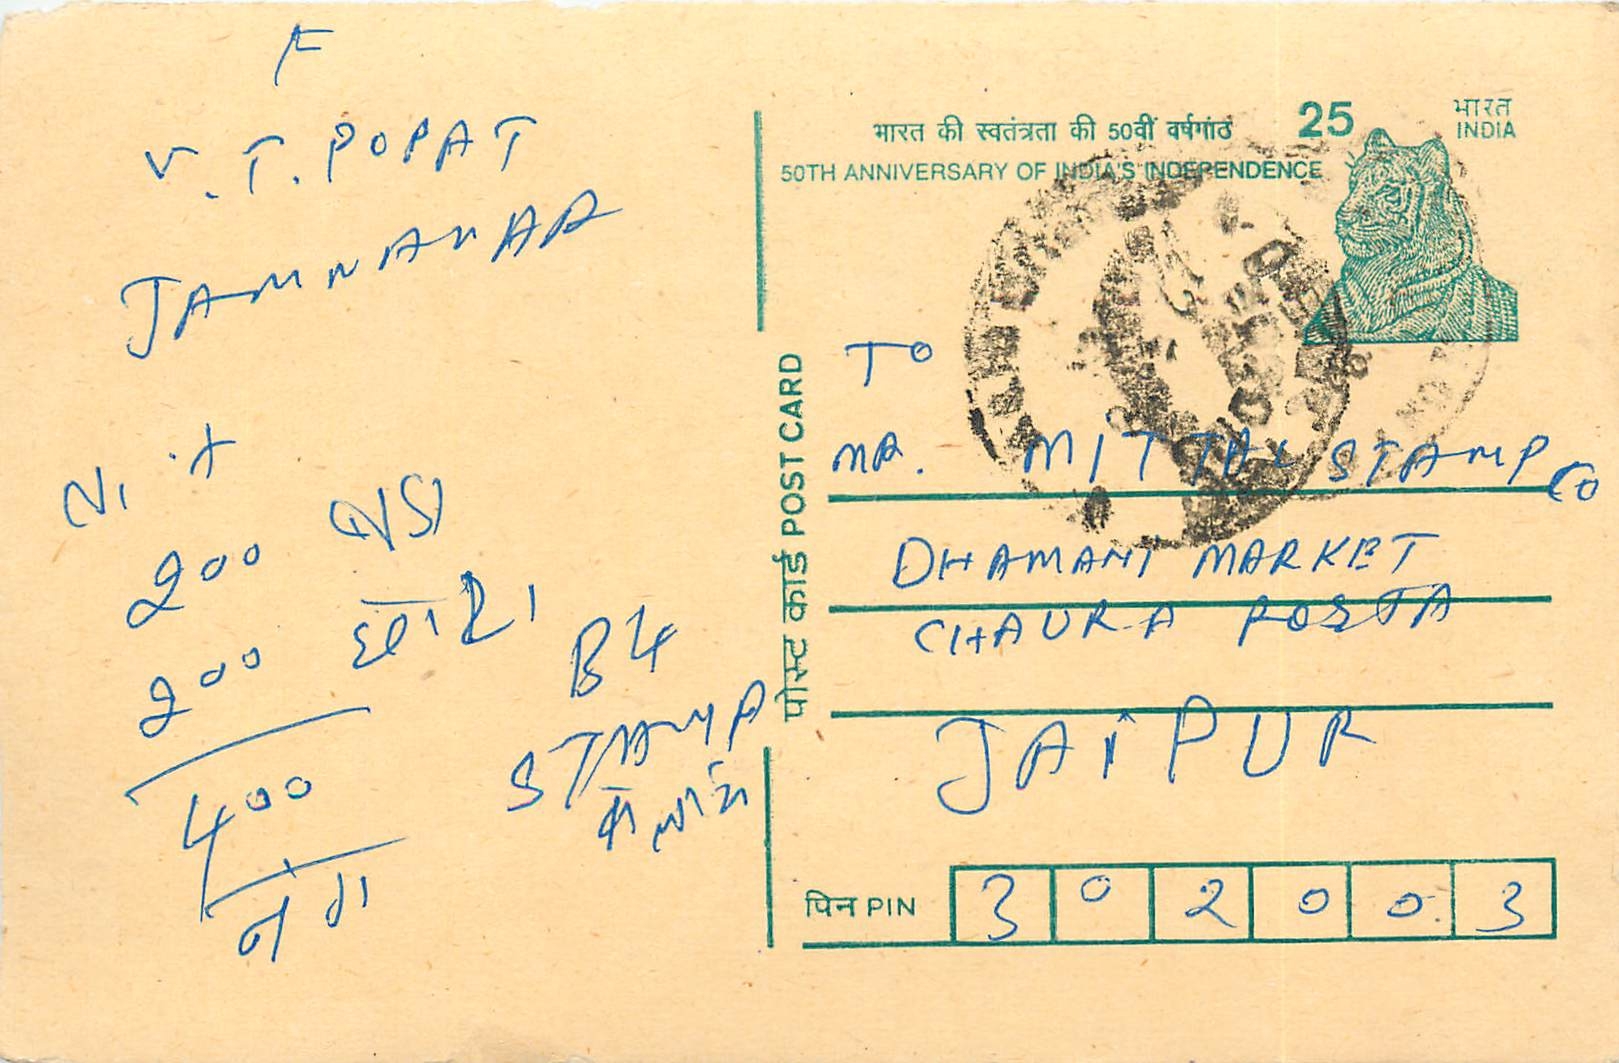 F
V.T. POPAT
JAMNAGAR
200
200
400
नंग
B4
STAMP
भारत की स्वतंत्रता की 50वीं वर्षगांठ
50TH ANNIVERSARY OF INDIA'S INDEPENDENCE
25
भारत
INDIA
पोस्ट कार्ड POST CARD
TO
MR. MITTAL STAMP Co
DHAMANI MARKET
CHAURA RASTA
JAIPUR
पिन PIN 302003